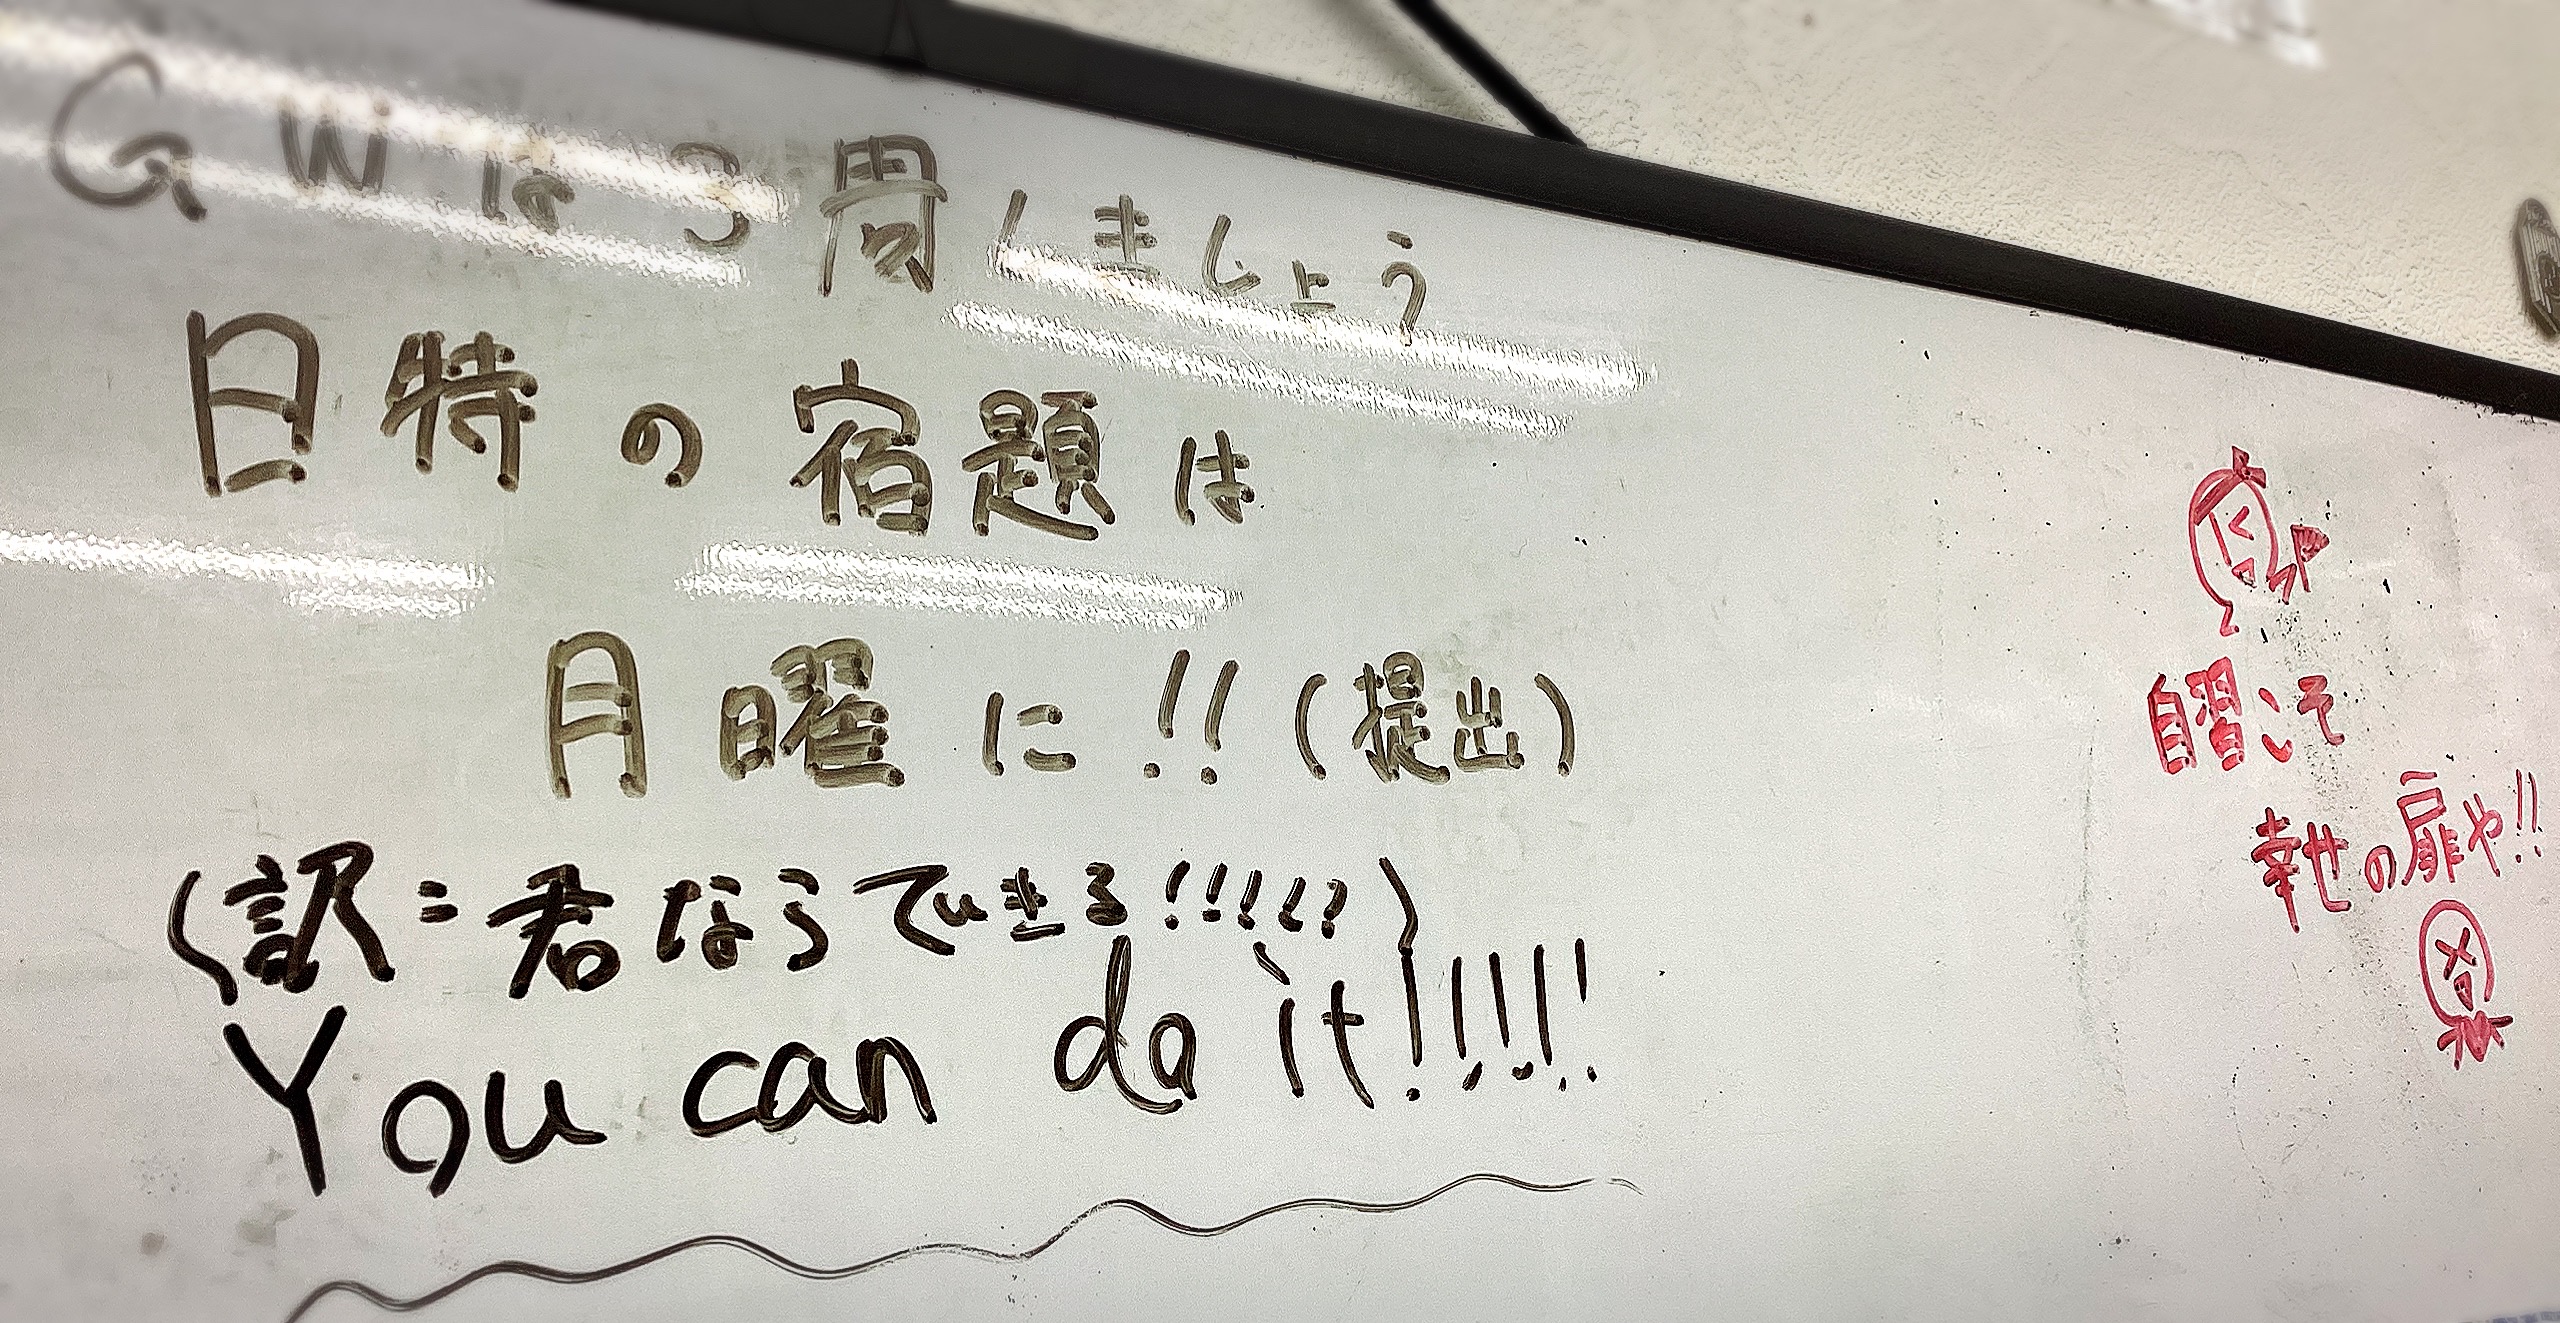 GWは3周しましょう
日特の宿題は
月曜に!!(提出)
(訳:君ならできる!!!!!)
You can do it!!!!!
自習こそ
幸せの扉や!!